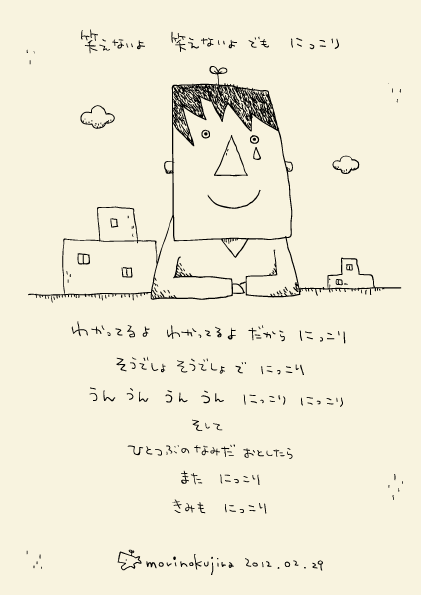 笑えないよ 笑えないよ でも にっこり
わかってるよ わかってるよ だから にっこり
そうでしょ そうでしょ で にっこり
うん うん うん うん にっこり にっこり
そして
ひとつぶの なみだ おとしたら
また にっこり
きみも にっこり
morinokujira 2012.02.29